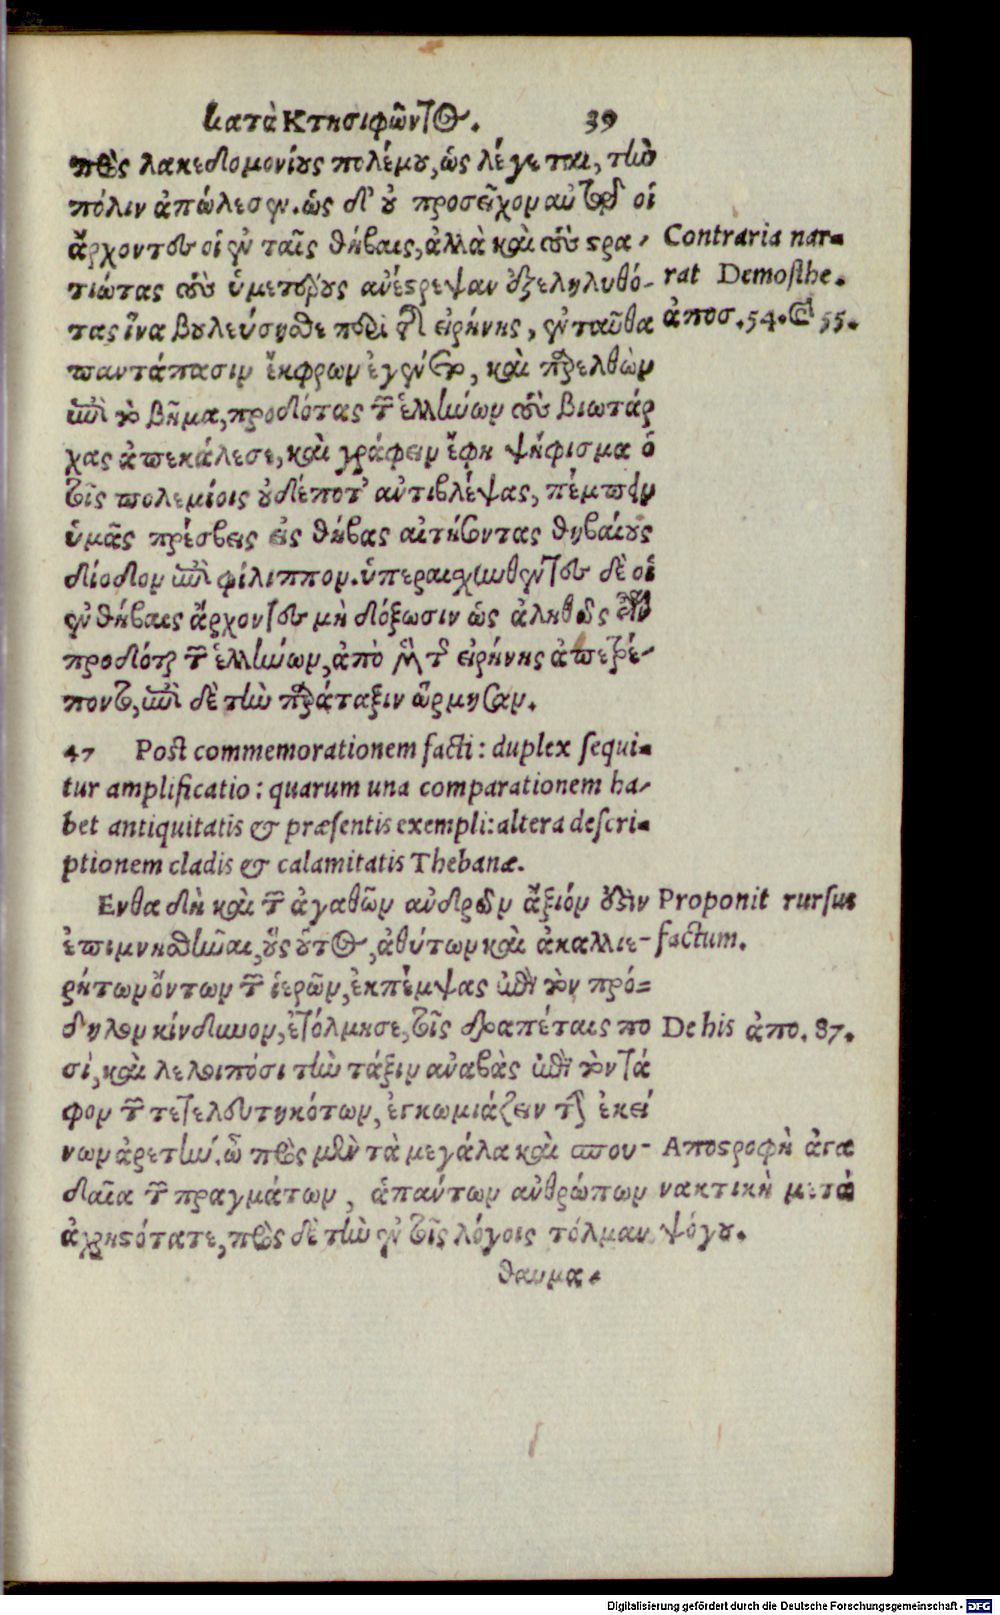 κατὰ Κτησιφῶντος. 39
πρὸς λακεδαιμονίους πολέμου, ὡς λέγεται, τὴν
πόλιν ἀπώλεσεν. ὡς δ' οὐ προσεῖχον αὐτῷ οἱ
ἄρχοντες οἱ ἐν ταῖς θήβαις, ἀλλὰ καὶ τοὺς στρα-
τιώτας τοὺς ὑμετέρους ἀνέστρεψαν ἐξεληλυθό-
τας ἵνα βουλεύσησθε περὶ τῆς εἰρήνης, ἐνταῦθα
παντάπασιν ἔκφρων ἐγένετο, καὶ παρελθὼν
ἐπὶ τὸ βῆμα, προδότας τῶν ἑλλήνων τοὺς βιωτάρ
χας ἀπεκάλεσε, καὶ γράφειν ἔφη ψήφισμα ὁ
τοῖς πολεμίοις οὐδέποτ' ἀντιβλέψας, πέμπειν
ὑμᾶς πρέσβεις εἰς θήβας αἰτήσοντας θηβαίους
δίοδον ἐπὶ φίλιππον. ὑπεραισχυνθέντες δὲ οἱ
ἐν θήβαις ἄρχοντες μὴ δόξωσιν ὡς ἀληθῶς εἶναι
προδόται τῶν ἑλλήνων, ἀπὸ μὲν τῆς εἰρήνης ἀπετρέ-
ποντο, ἐπὶ δὲ τὴν παράταξιν ὥρμησαν.
Contraria nar-
rat Demosthe.
ἀποσ. 54. & 55.
47 Post commemorationem facti: duplex sequi-
tur amplificatio: quarum una comparationem ha-
bet antiquitatis & præsentis exempli: altera descri-
ptionem cladis & calamitatis Thebanæ.
Ενθα δὴ καὶ τῶν ἀγαθῶν ἀνδρῶν ἄξιόν ἐστιν
ἐπιμνησθῆναι, οὓς οὗτος, ἀθύτων καὶ ἀκαλλιε-
ρήτων ὄντων τῶν ἱερῶν, ἐκπέμψας ἐπὶ τὸν πρό-
δηλον κίνδυνον, ἐτόλμησε, τοῖς δραπέταις πο
σὶ, καὶ λελοιπόσι τὴν τάξιν ἀναβὰς ἐπὶ τὸν τά
φον τῶν τετελευτηκότων, ἐγκωμιάζειν τὴν ἐκεί
νων ἀρετήν. ὦ πρὸς μὲν τὰ μεγάλα καὶ σπου-
δαῖα τῶν πραγμάτων, ἁπάντων ἀνθρώπων
ἀχρηστότατε, πρὸς δὲ τὴν ἐν τοῖς λόγοις τόλμαν
Proponit rursus
factum.
De his ἀπο. 87.
Αποστροφὴ ἀγα
νακτικὴ μετὰ
ψόγου.
θαυμα-
Digitalisierung gefördert durch die Deutsche Forschungsgemeinschaft - DFG